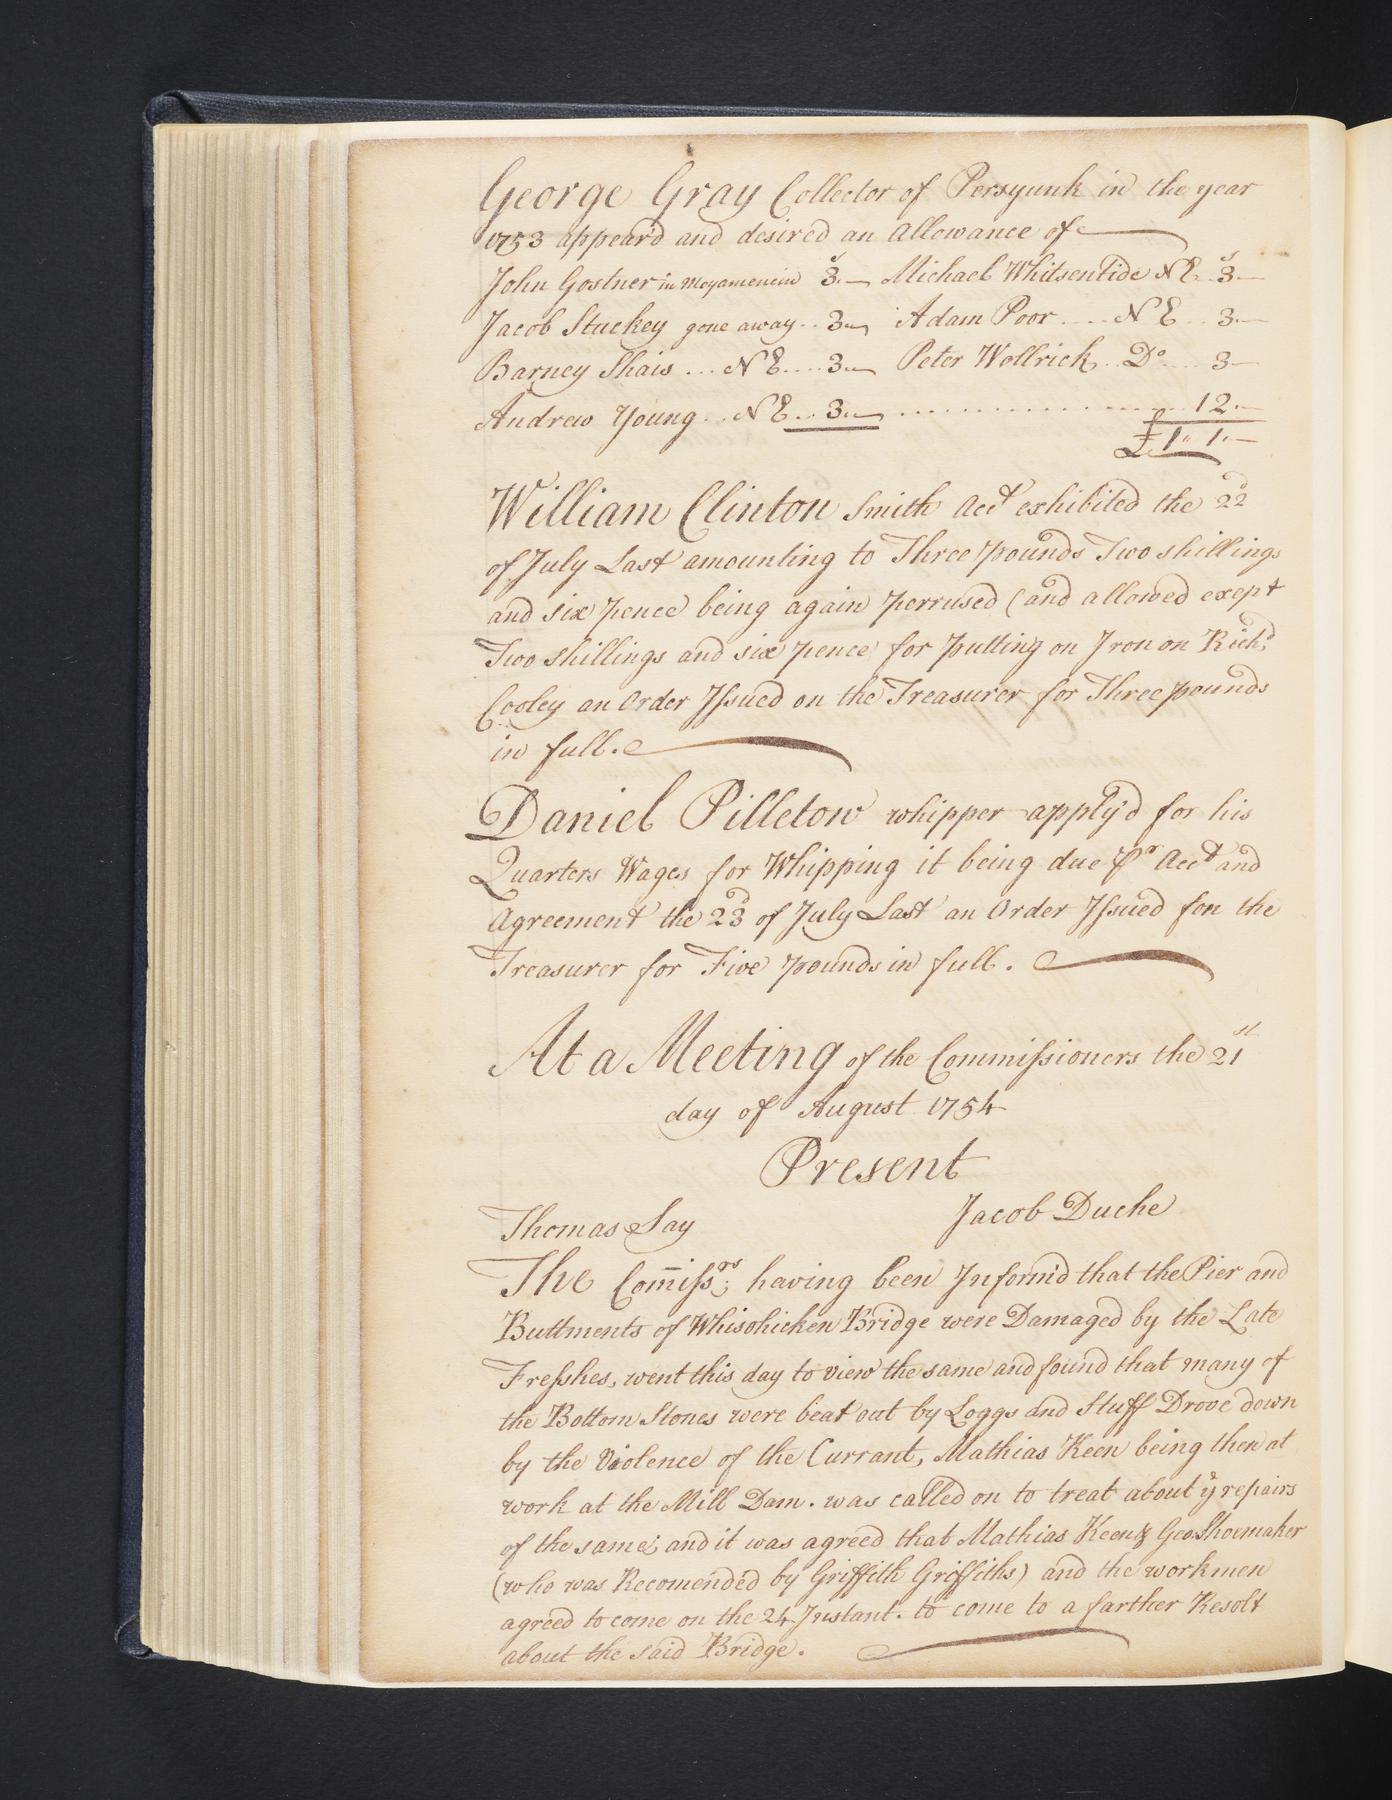 George Gray Collector of Persyunk in the year
1753 appear'd and desired an Allowance of
John Gostner in Moyamencin 3.— Michael Whitsentide NE 3.—
Jacob Stuckey gone away .. 3.— Adam Poor .... NE .. 3.—
Barney Shais ... NE .... 3.— Peter Wollrick .. Do .... 3—
Andrew Young .. NE .. 3.— .................... 12.—
£1.. 1.—
William Clinton Smith Acct exhibited the 22d
of July Last amounting to Three pounds Two shillings
and six pence being again perrused (and allowed exept
Two shillings and six pence for putting on Iron on Richd
Cooley an Order Issued on the Treasurer for Three pounds
in full.
Daniel Pilletow whipper apply'd for his
Quarters Wages for Whipping it being due Pr Acct and
Agreement the 23d of July Last an Order Issued fon the
Treasurer for Five pounds in full.
At a Meeting of the Commissioners the 21st
day of August 1754
Present
Thomas Say Jacob Duche
The Com̄issrs; having been Inform'd that the Pier and
Buttments of Whisohicken Bridge were Damaged by the Late
Fresshes, went this day to view the same and found that many of
the Bottom Stones were beat out by Loggs and Stuff Drove down
by the Violence of the Currant, Mathias Keen being then at
work at the Mill Dam. was called on to treat about ye repairs
of the same; and it was agreed that Mathias Keen & Geo Shoemaker
(who was Recomended by Griffith Griffiths) and the workmen
agreed to come on the 24 Instant. to come to a farther Resolt
about the said Bridge.